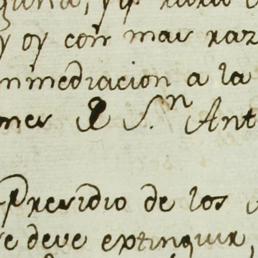 y oy con mas raz
nmediacion a la
mes D S.n Ant
Presidio de los
e deve extinguir,